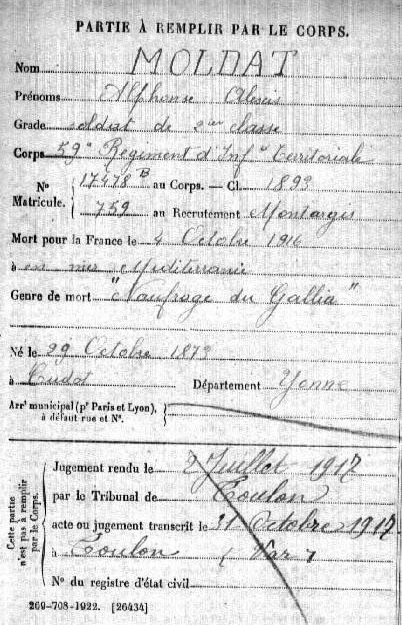 PARTIE À REMPLIR PAR LE CORPS.
Nom MOLDAT
Prénoms Alphonse Alexis
Grade soldat de 2ème classe
Corps 59e Régiment d'Infie territoriale
No 17478B au Corps. — Cl. 1893
Matricule. 759 au Recrutement Montargis
Mort pour la France le 4 Octobre 1916
à en mer Méditerranée
Genre de mort "Naufrage du Gallia"
Né le 29 Octobre 1873
à Cudot Département Yonne
Arrt municipal (pr Paris et Lyon),
à défaut rue et No.
Cette partie
n'est pas à remplir
par le Corps.
Jugement rendu le Juillet 1917
par le Tribunal de Toulon
acte ou jugement transcrit le 31 Octobre 1917
à Toulon (Var)
No du registre d'état civil
269-708-1922. [26434]